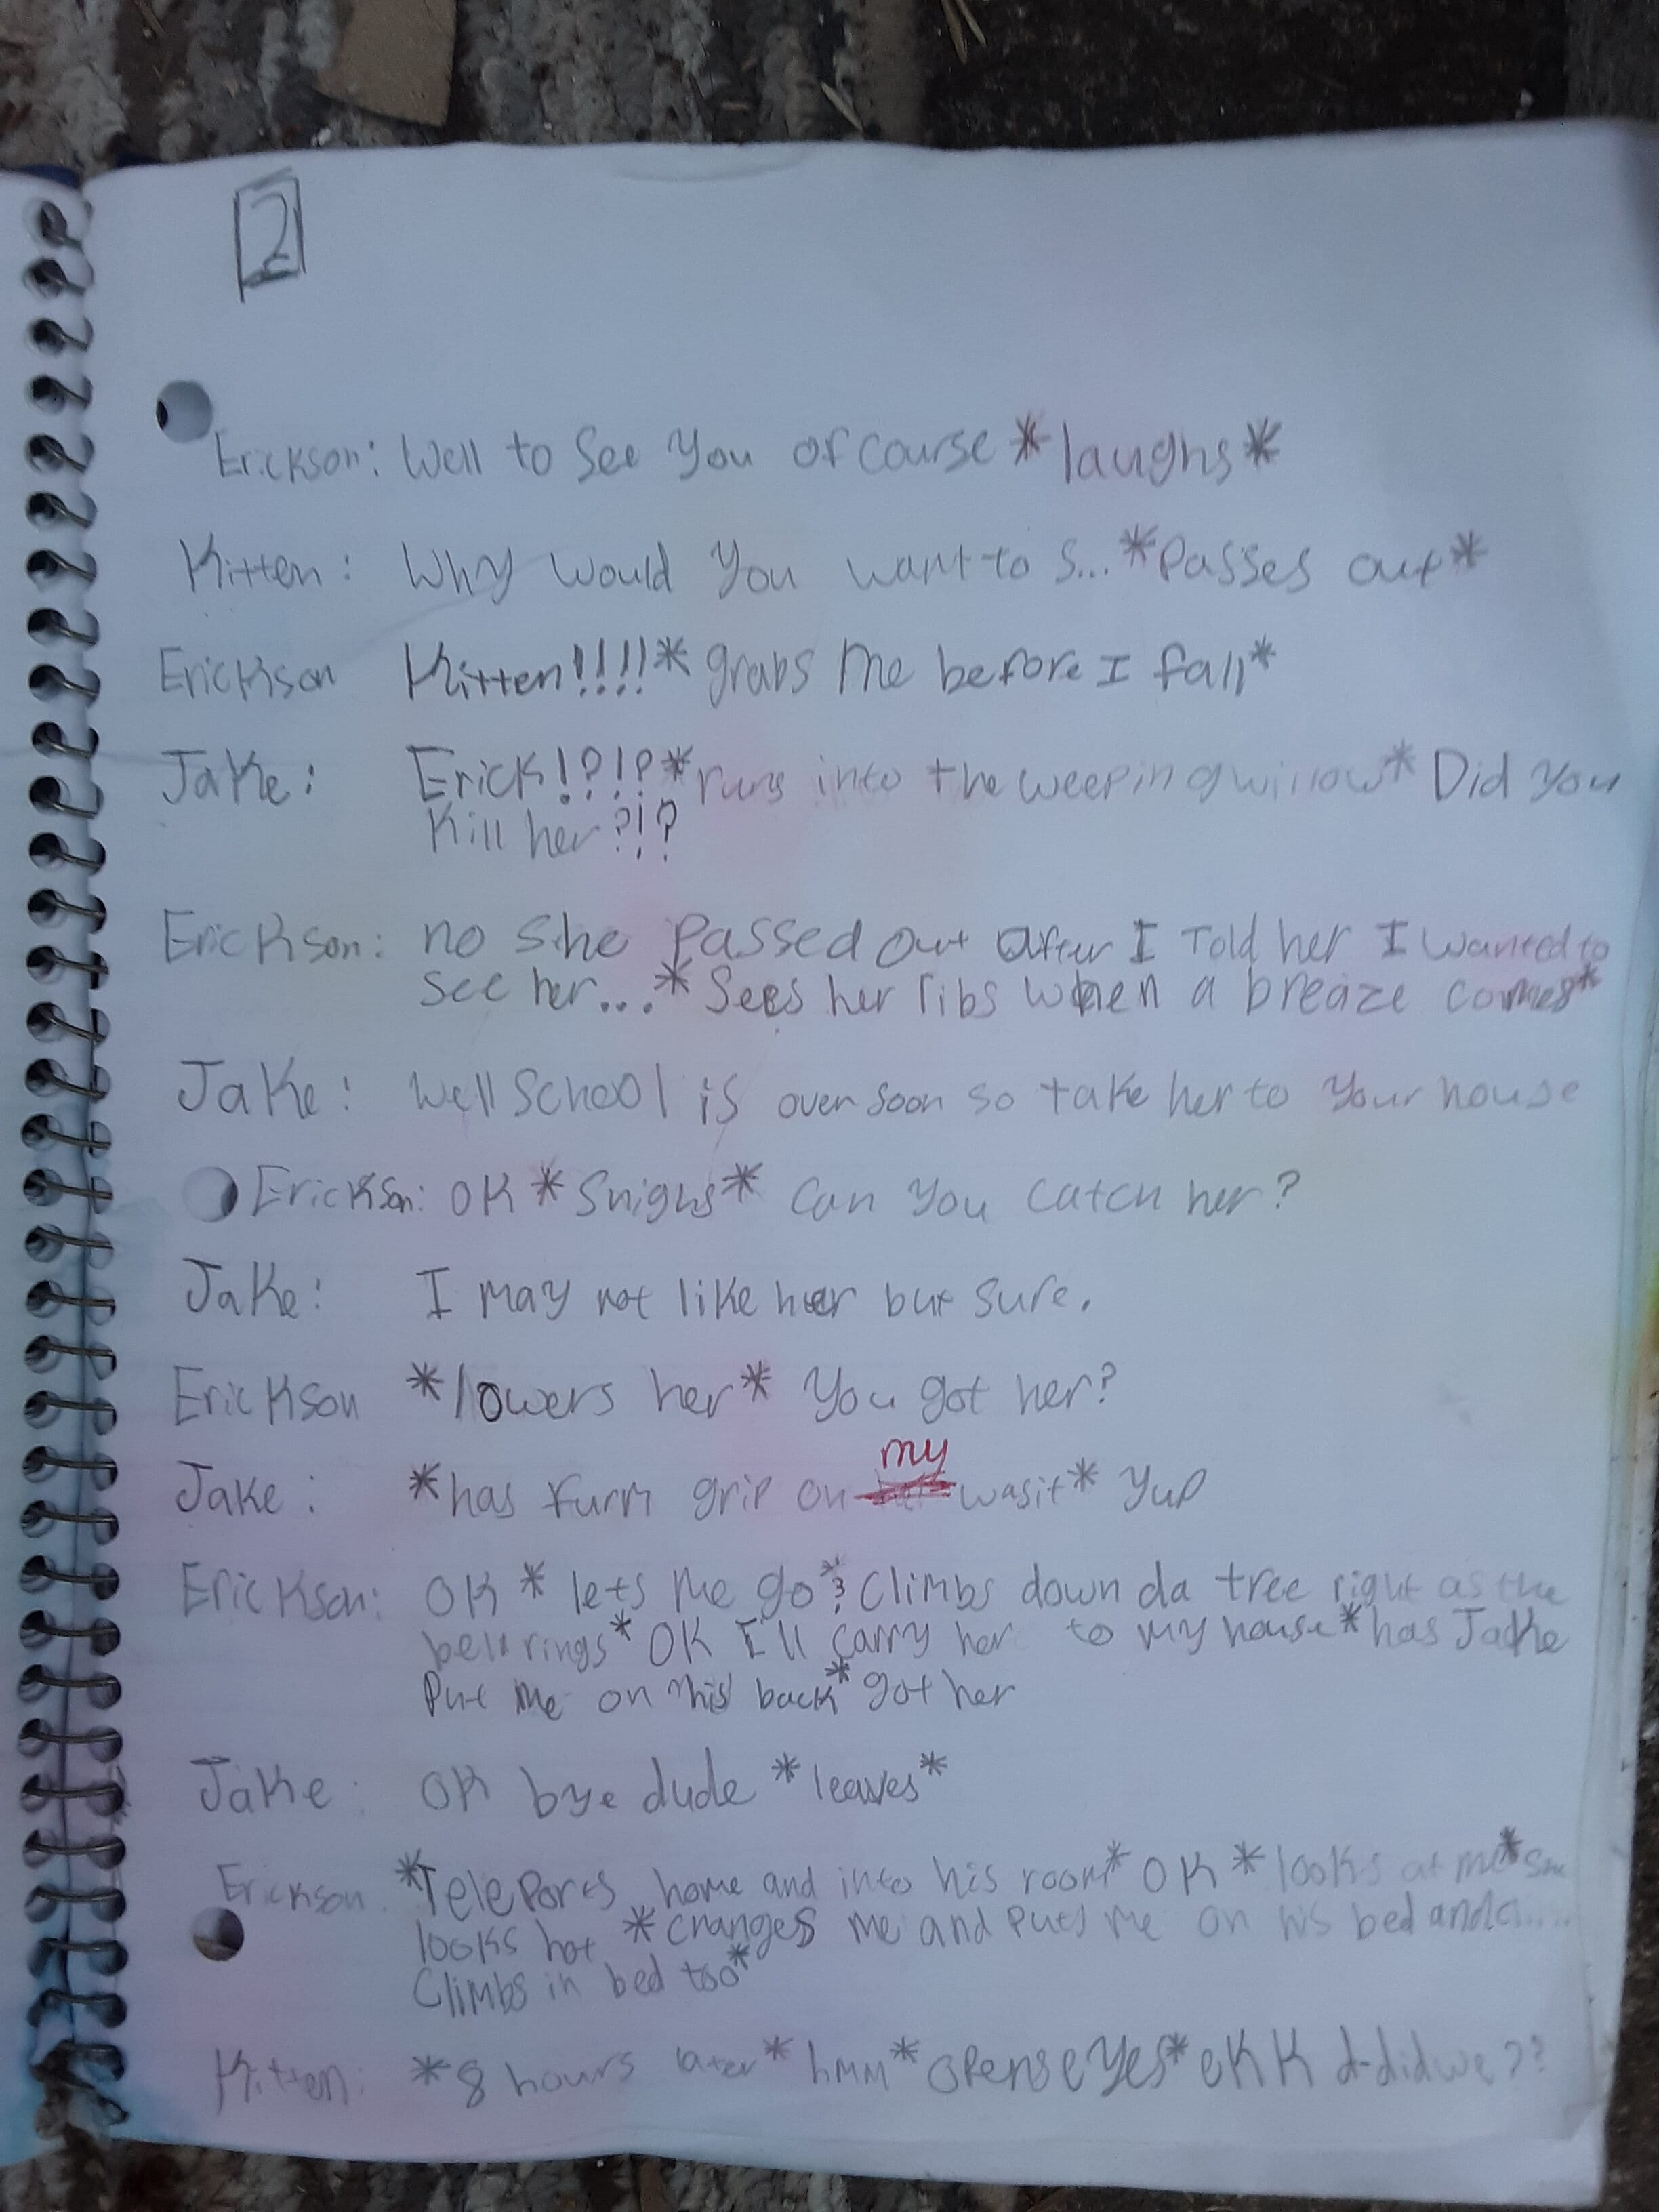 2
Erickson: Well to see you of course *laughs*
Kitten: Why would you want to s... *Passes out*
Erickson Kitten!!!!* grabs me before I fall*
Jake: Erick!?!?*runs into the weeping willow* Did you
Kill her ?!?
Erickson: no she passed out after I Told her I wanted to
see her...* Sees her ribs when a breaze comes*
Jake: Well School is over soon so take her to your house
Erickson: OK *Snighs* can you catch her?
Jake: I may not like her but sure.
Erickson *lowers her* You got her?
my
Jake: *has furm grip on wasit* Yup
Erickson: OK * lets me go & Climbs down da tree right as the
bell rings* OK I'll carry her to my house *has Jake
Put me on his back* got her
Jake: OK bye dude *leaves*
Erickson *TelePorts home and into his room* OK *looks at me*
looks hot *changes me and puts me on his bed and
Climbs in bed too*
Kitten: *8 hours later* hmm* opens eyes* eKK d-did we??